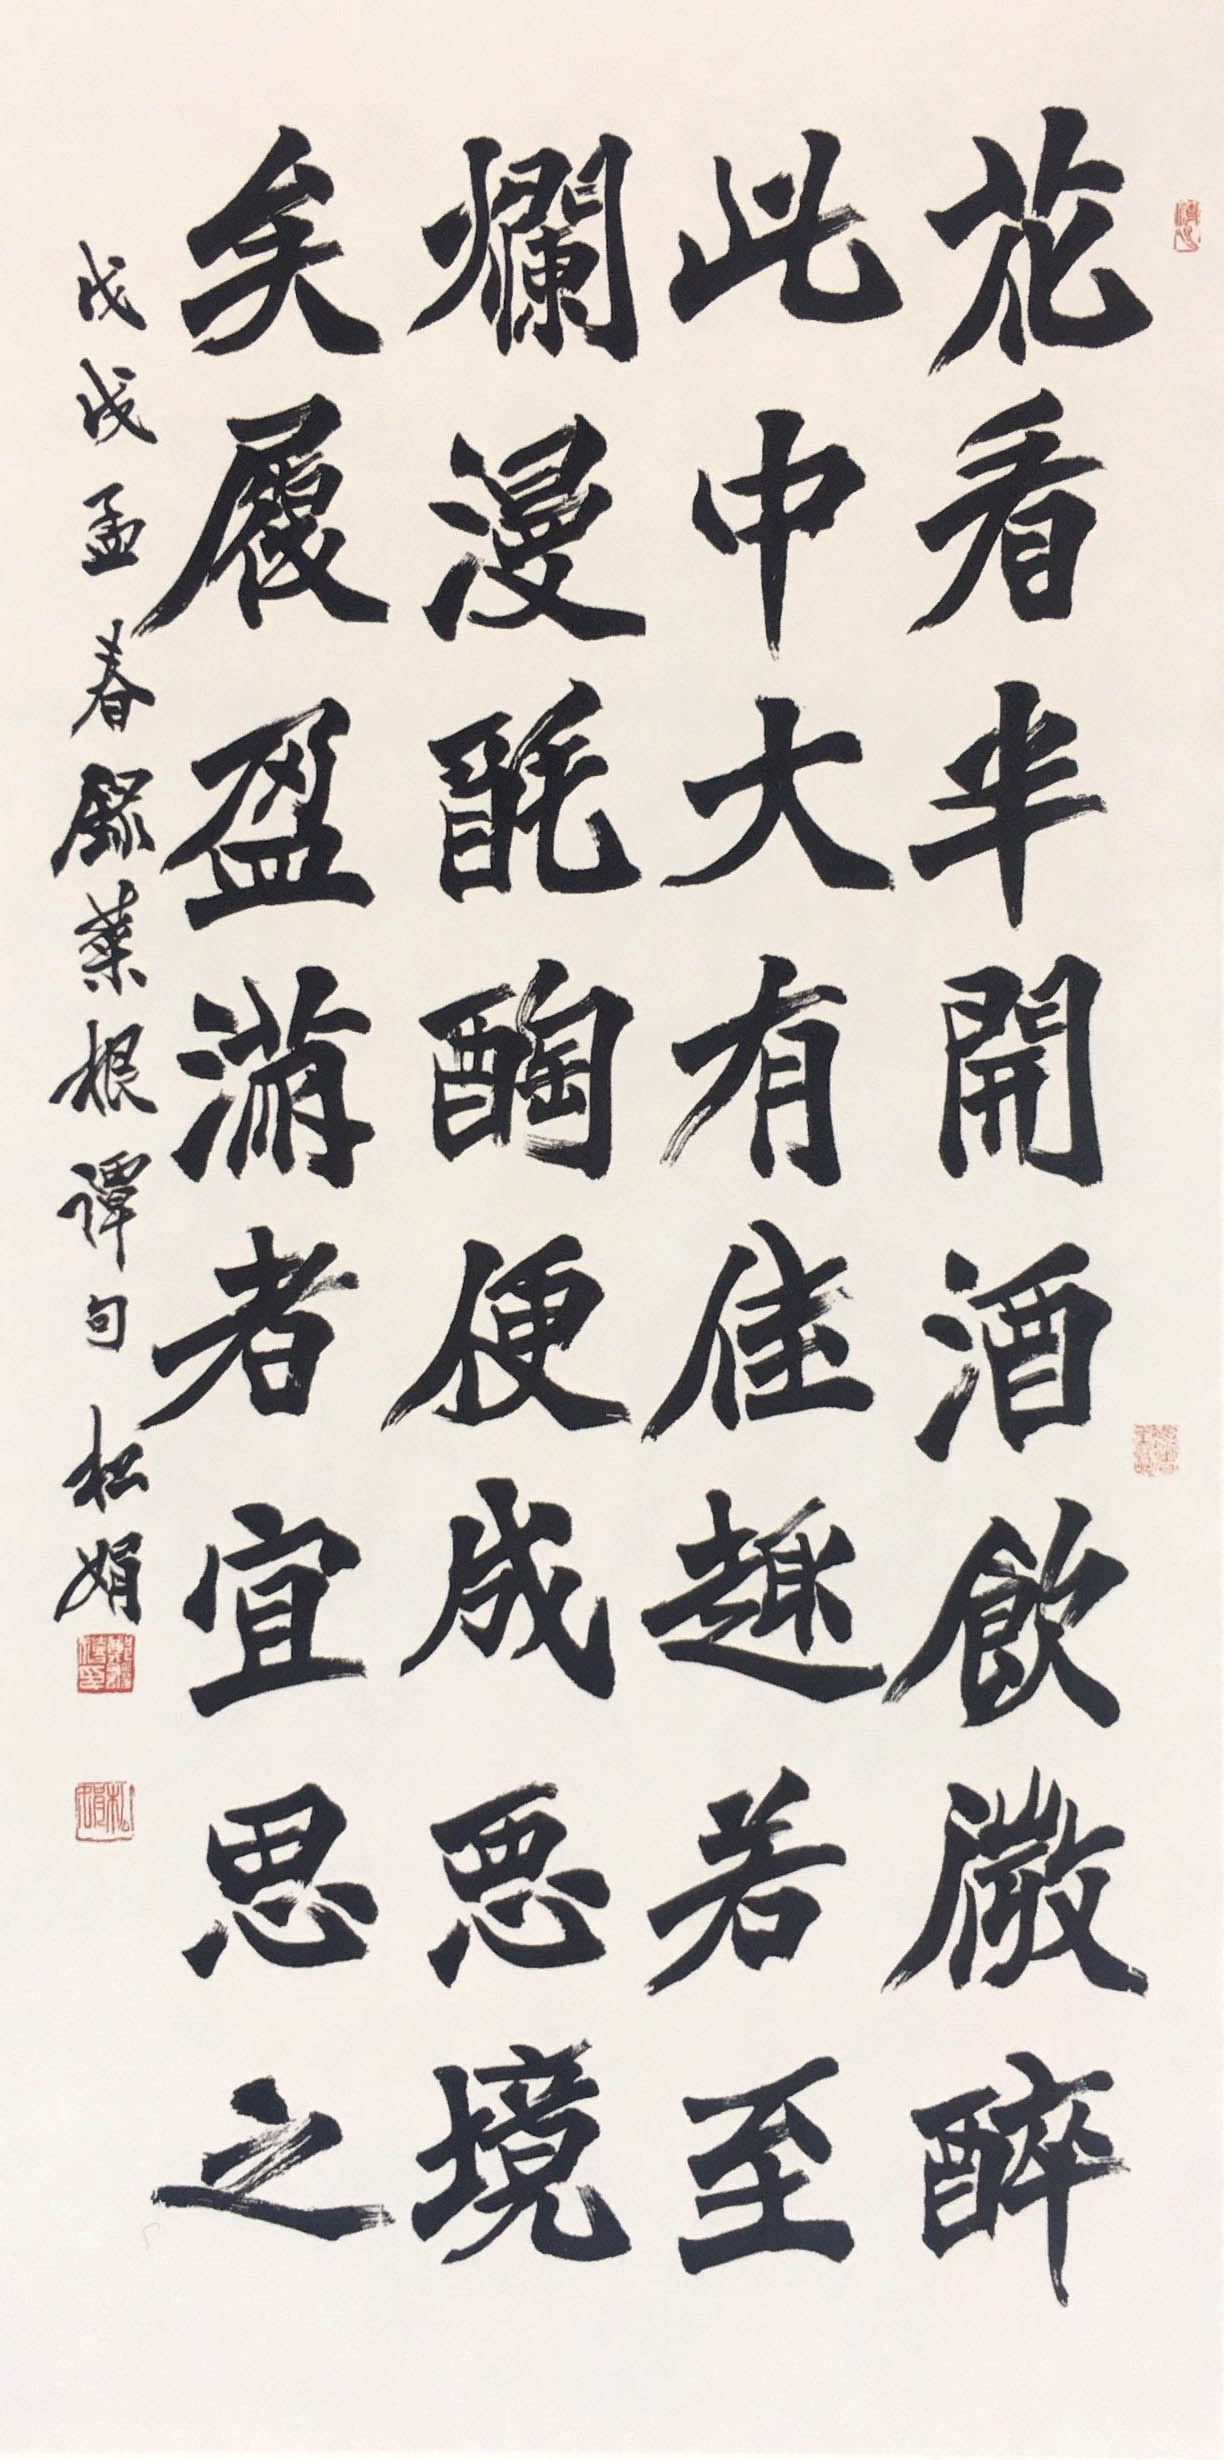 花看半開酒飲微醉
此中大有佳趣若至
爛漫酕醄便成惡境
矣履盈滿者宜思之
戊戌孟春錄菜根谭句 松娟